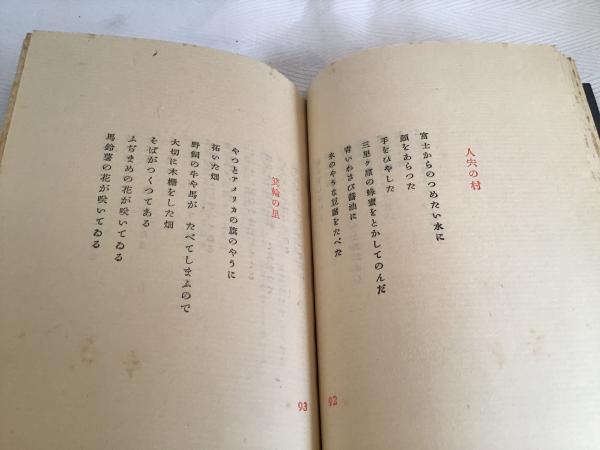 人穴の村
富士からのつめたい水に
顔をあらつた
手をひやした
三里ヶ原の蜂蜜をとかしてのんだ
青いわさび醤油に
水のやうな豆腐をたべた
92
箕輪の里
やつとアメリカの旗のやうに
拓いた畑
野飼の牛や馬が たべてしまふので
大切に木柵をした畑
そばがつくつてある
ふぢまめの花が咲いてゐる
馬鈴薯の花が咲いてゐる
93